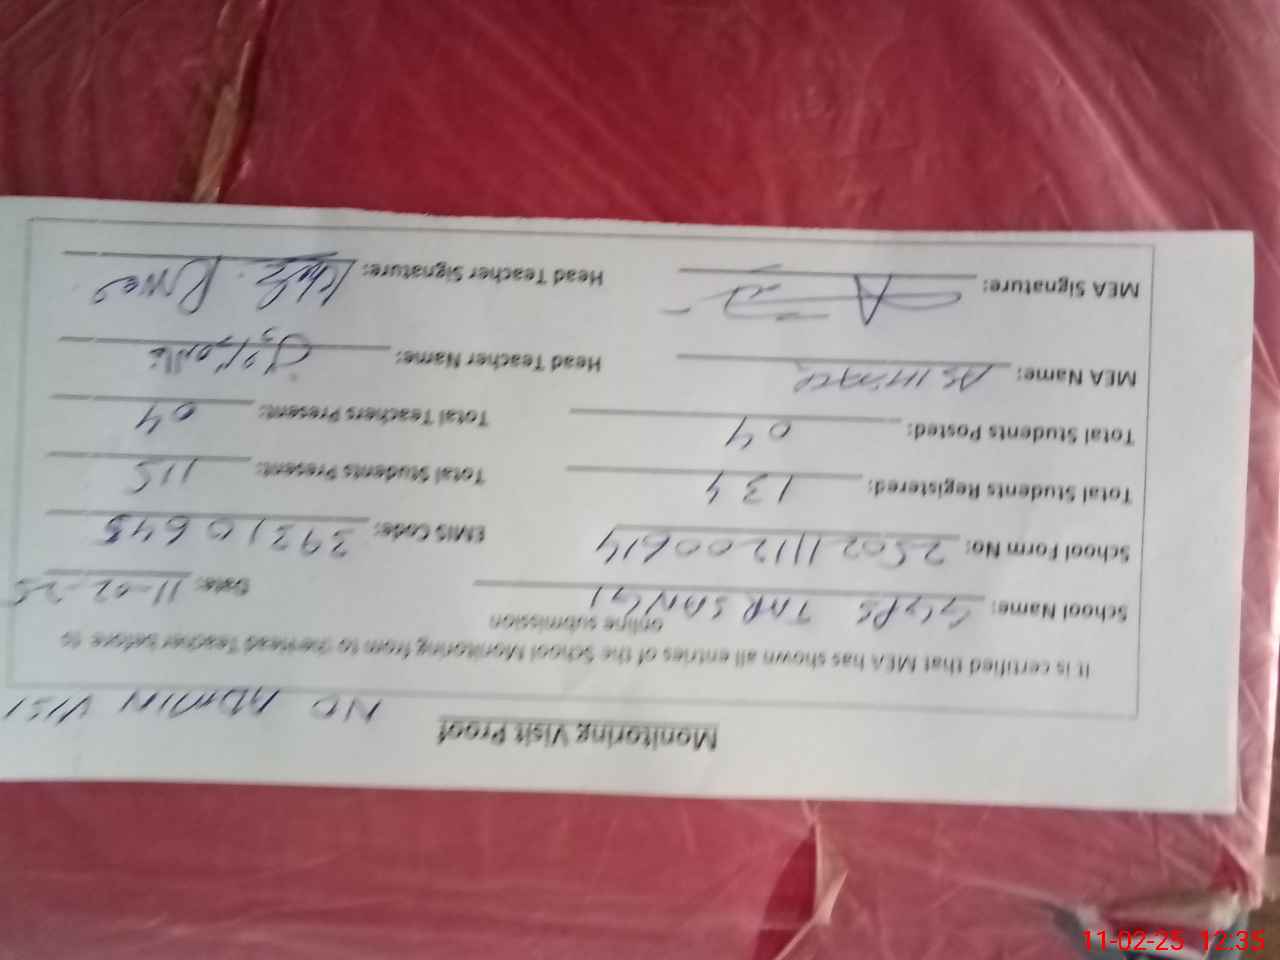 Monitoring Visit Proof NO ADMIN VISI
It is certified that MEA has shown all entries of the School Monitoring from to the Head Teacher before to
online submission
School Name: GGPS TARSANGI Date: 11-02-25
School Form No: 2502111200614 EMIS Code: 39310645
Total Students Registered: 134 Total Students Present: 115
Total Students Posted: 04 Total Teachers Present: 04
MEA Name: Head Teacher Name:
MEA Signature: Head Teacher Signature:
11-02-25 12:35